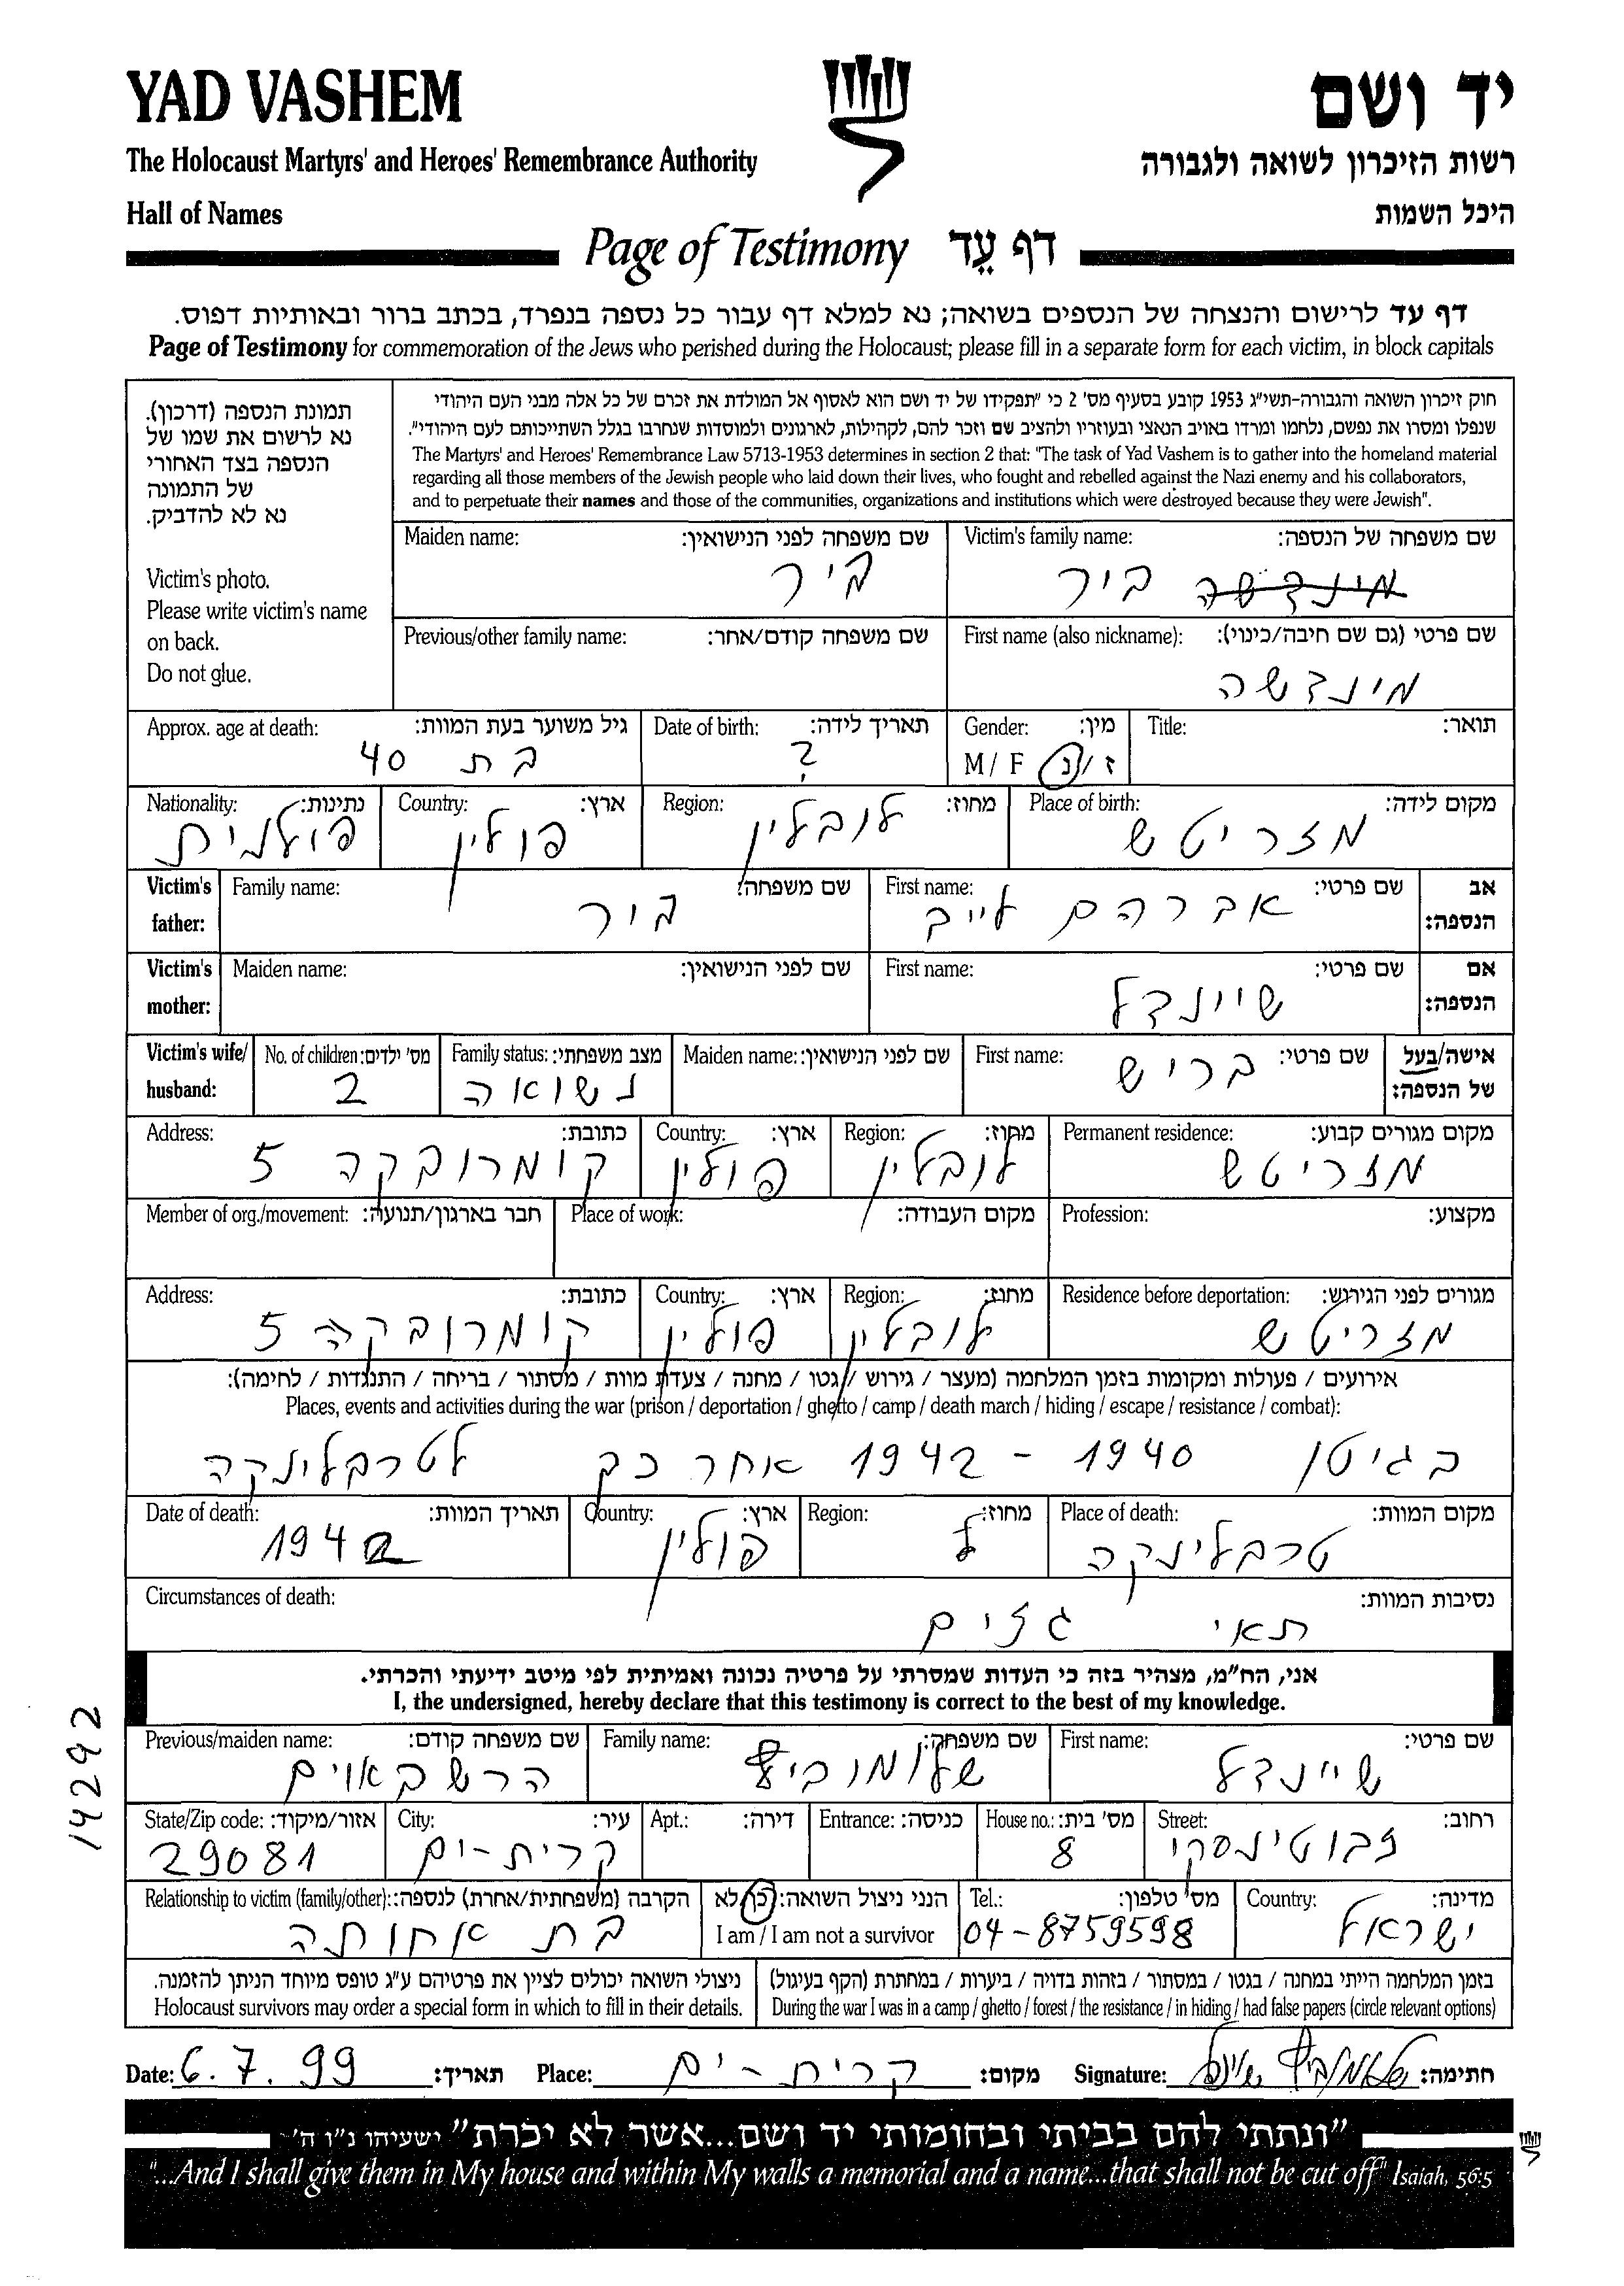 YAD VASHEM
יד ושם
The Holocaust Martyrs' and Heroes' Remembrance Authority
רשות הזיכרון לשואה ולגבורה
Hall of Names
היכל השמות
Page of Testimony דף עֵד
דף עד לרישום והנצחה של הנספים בשואה; נא למלא דף עבור כל נספה בנפרד, בכתב ברור ובאותיות דפוס.
Page of Testimony for commemoration of the Jews who perished during the Holocaust; please fill in a separate form for each victim, in block capitals
תמונת הנספה (דרכון).
נא לרשום את שמו של
הנספה בצד האחורי
של התמונה
נא לא להדביק.
Victim's photo.
Please write victim's name
on back.
Do not glue.
חוק זיכרון השואה והגבורה-תשי"ג 1953 קובע בסעיף מס' 2 כי "תפקידו של יד ושם הוא לאסוף אל המולדת את זכרם של כל אלה מבני העם היהודי
שנפלו ומסרו את נפשם, נלחמו ומרדו באויב הנאצי ובעוזריו ולהציב שם וזכר להם, לקהילות, לארגונים ולמוסדות שנחרבו בגלל השתייכותם לעם היהודי".
The Martyrs' and Heroes' Remembrance Law 5713-1953 determines in section 2 that: "The task of Yad Vashem is to gather into the homeland material
regarding all those members of the Jewish people who laid down their lives, who fought and rebelled against the Nazi enemy and his collaborators,
and to perpetuate their names and those of the communities, organizations and institutions which were destroyed because they were Jewish".
Victim's family name: שם משפחה של הנספה:
מינדשה ביר
Maiden name: שם משפחה לפני הנישואין:
ביר
First name (also nickname): שם פרטי (גם שם חיבה/כינוי):
מינדשה
Previous/other family name: שם משפחה קודם/אחר:
Title: תואר:
Gender: מין:
M / F ז / נ
Date of birth: תאריך לידה:
?
Approx. age at death: גיל משוער בעת המוות:
בת 40
Place of birth: מקום לידה:
מזריטש
Region: מחוז:
לובלין
Country: ארץ:
פולין
Nationality: נתינות:
פולנית
Victim's father: אב הנספה:
First name: שם פרטי:
אברהם לייב
Family name: שם משפחה:
ביר
Victim's mother: אם הנספה:
First name: שם פרטי:
שיינדל
Maiden name: שם לפני הנישואין:
Victim's wife/ husband: אישה/בעל של הנספה:
First name: שם פרטי:
בריש
Maiden name: שם לפני הנישואין:
Family status: מצב משפחתי:
נשואה
No. of children: מס' ילדים:
2
Permanent residence: מקום מגורים קבוע:
מזריטש
Region: מחוז:
לובלין
Country: ארץ:
פולין
Address: כתובת:
קומרובקה 5
Profession: מקצוע:
Place of work: מקום העבודה:
Member of org./movement: חבר בארגון/תנועה:
Residence before deportation: מגורים לפני הגירוש:
מזריטש
Region: מחוז:
לובלין
Country: ארץ:
פולין
Address: כתובת:
קומרובקה 5
אירועים / פעולות ומקומות בזמן המלחמה (מעצר / גירוש / גטו / מחנה / צעדת מוות / מסתור / בריחה / התנגדות / לחימה):
Places, events and activities during the war (prison / deportation / ghetto / camp / death march / hiding / escape / resistance / combat):
בגיטו 1940 - 1942 אחר כך לטרבלינקה
Place of death: מקום המוות:
טרבלינקה
Region: מחוז:
Country: ארץ:
פולין
Date of death: תאריך המוות:
1942
Circumstances of death: נסיבות המוות:
תאי גזים
אני, הח"מ, מצהיר בזה כי העדות שמסרתי על פרטיה נכונה ואמיתית לפי מיטב ידיעתי והכרתי.
I, the undersigned, hereby declare that this testimony is correct to the best of my knowledge.
14292
First name: שם פרטי:
שיינדל
Family name: שם משפחה:
שלומוביץ
Previous/maiden name: שם משפחה קודם:
הרשבאוים
Street: רחוב:
זבוטינסקי
House no.: מס' בית:
8
Entrance: כניסה:
Apt.: דירה:
City: עיר:
קרית-ים
State/Zip code: אזור/מיקוד:
29081
Country: מדינה:
ישראל
Tel.: מס' טלפון:
04-8759598
הנני ניצול השואה: כן/לא
I am / I am not a survivor
Relationship to victim (family/other): הקרבה (משפחתית/אחרת) לנספה:
בת אחותה
בזמן המלחמה הייתי במחנה / בגטו / במסתור / בזהות בדויה / ביערות / במחתרת (הקף בעיגול)
During the war I was in a camp / ghetto / forest / the resistance / in hiding / had false papers (circle relevant options)
ניצולי השואה יכולים לציין את פרטיהם ע"ג טופס מיוחד הניתן להזמנה.
Holocaust survivors may order a special form in which to fill in their details.
Date: 6.7.99 תאריך: Place: קרית-ים מקום: Signature: שלומוביץ שיינדל חתימה:
"ונתתי להם בביתי ובחומותי יד ושם...אשר לא יכרת" ישעיהו נ"ו ה'
"...And I shall give them in My house and within My walls a memorial and a name...that shall not be cut off" Isaiah, 56:5